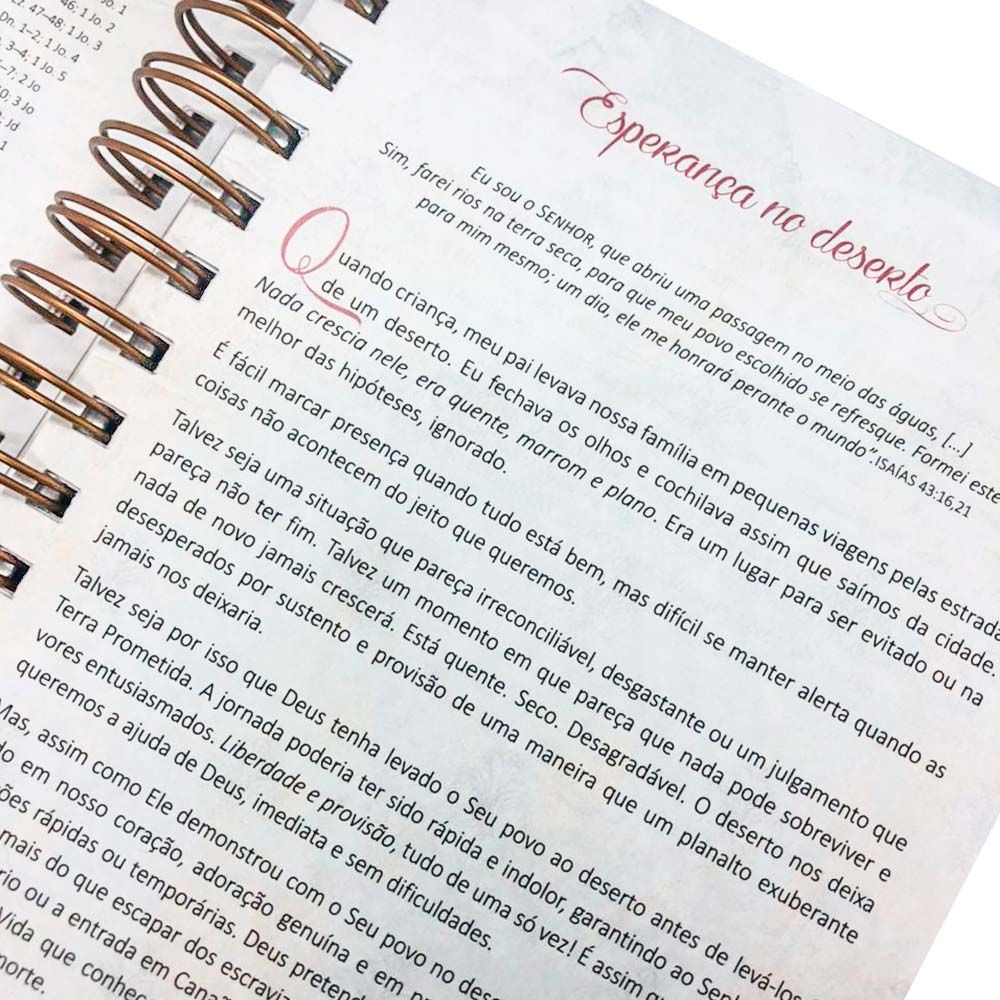 46; 1 Jo. 2
Ez. 47–48; 1 Jo. 3
Dn. 1–2; 1 Jo. 4
3–4; 1 Jo. 5
–7; 2 Jo
0; 3 Jo
Jd
1
Esperança no deserto
Eu sou o SENHOR, que abriu uma passagem no meio das águas, [...]
Sim, farei rios na terra seca, para que meu povo escolhido se refresque. Formei este
para mim mesmo; um dia, ele me honrará perante o mundo”. ISAÍAS 43:16,21
Quando criança, meu pai levava nossa família em pequenas viagens pelas estrada
de um deserto. Eu fechava os olhos e cochilava assim que saímos da cidade.
Nada crescia nele, era quente, marrom e plano. Era um lugar para ser evitado ou na
melhor das hipóteses, ignorado.
É fácil marcar presença quando tudo está bem, mas difícil se manter alerta quando as
coisas não acontecem do jeito que queremos.
Talvez seja uma situação que pareça irreconciliável, desgastante ou um julgamento que
pareça não ter fim. Talvez um momento em que pareça que nada pode sobreviver e
nada de novo jamais crescerá. Está quente. Seco. Desagradável. O deserto nos deixa
desesperados por sustento e provisão de uma maneira que um planalto exuberante
jamais nos deixaria.
Talvez seja por isso que Deus tenha levado o Seu povo ao deserto antes de levá-los
Terra Prometida. A jornada poderia ter sido rápida e indolor, garantindo ao Senh
vores entusiasmados. Liberdade e provisão, tudo de uma só vez! É assim q
queremos a ajuda de Deus, imediata e sem dificuldades.
Mas, assim como Ele demonstrou com o Seu povo no dese
do em nosso coração, adoração genuína e em pr
ões rápidas ou temporárias. Deus pretend
mais do que escapar dos escraviz
rio ou a entrada em Canaã
Vida que conhec
morte.